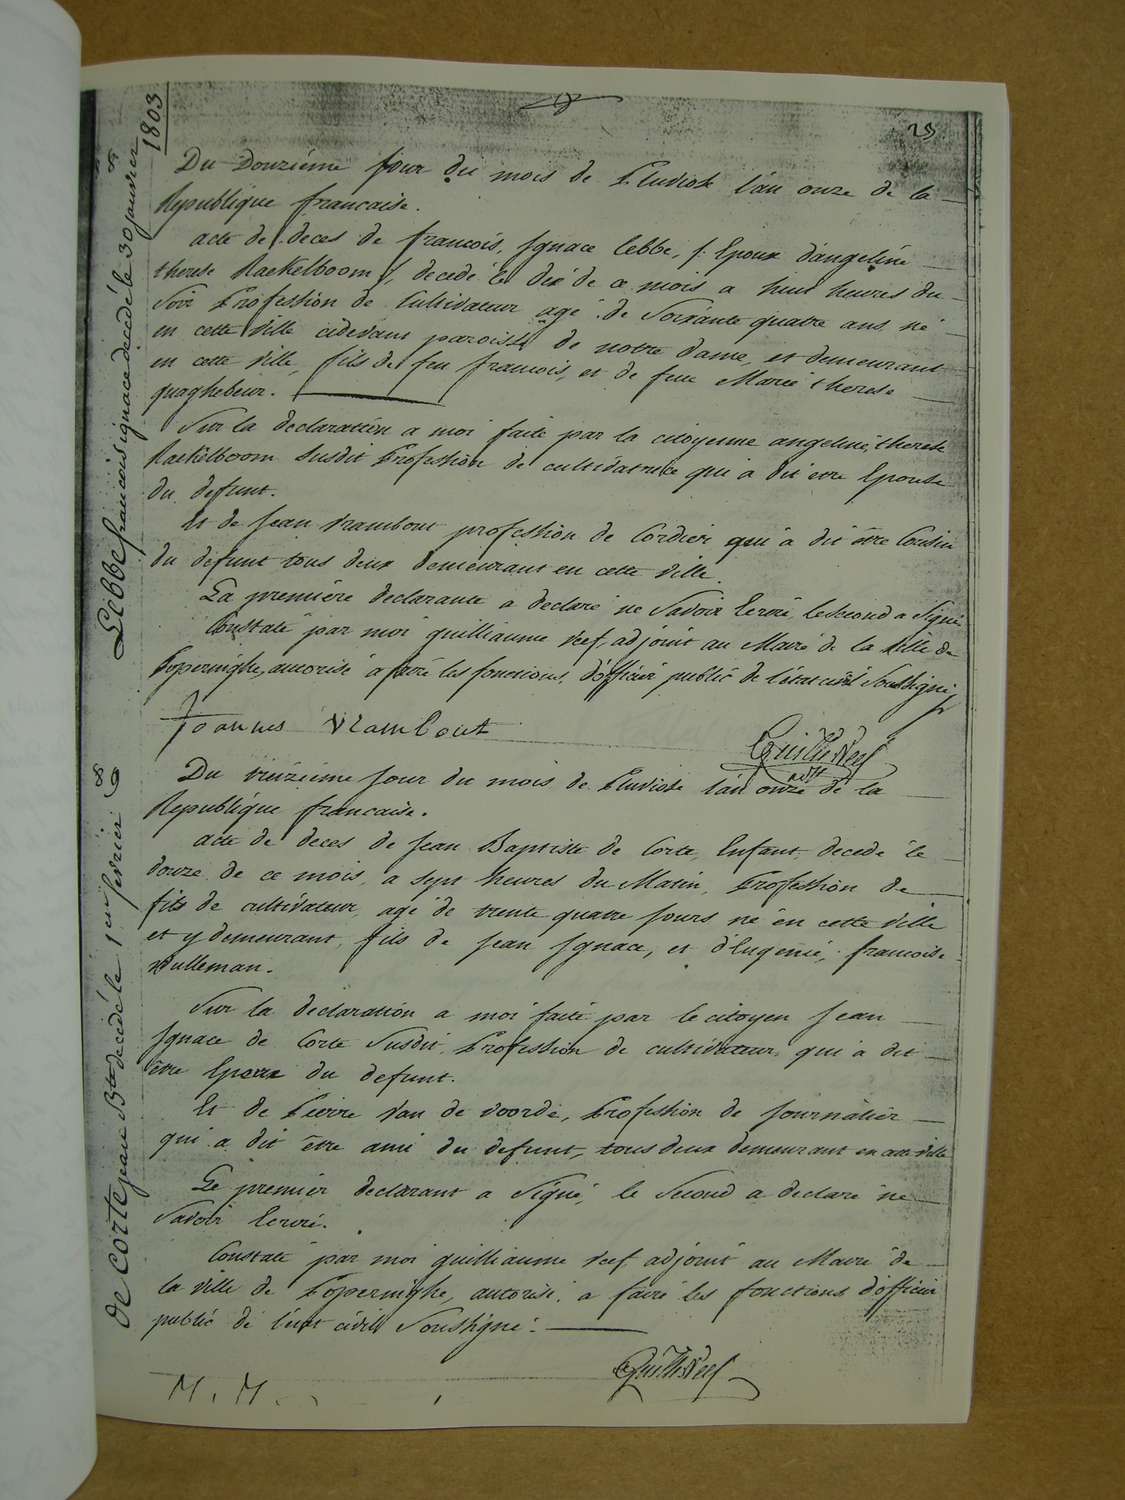 23
1803
Du Douziéme jour du mois de Pluviose l'an onze de la
Republique francaise.
acte de deces de francois, Ignace Lebbe, /: Epoux d'angeline
therese Raekelboom /, decedé le dix de ce mois a huit heures du
Soir Profession de Cultivateur agé de Soixante quatre ans né
en cette Ville cidevant paroisse de notre dame, et demeurant
en cette ville, fils de feu francois, et de feue Marie therese
quaghebeur.
Sur la declaration a moi faite par la citoyenne angeline, therese
Raekelboom Susdit Profession de cultivatrice qui a dit etre Epouse
du defunt.
Et de Jean Vrambout profession de Cordier qui a dit être Cousin
du defunt tous deux demeurant en cette ville.
La premiére declarante a declaré ne Savoir Ecrire, le second a Signé
Constaté par moi guilliaume Reef, adjoint au Maire de la Ville de
Poperinghe, autorisé a faire les fonctions d'officier public de l'état civil Soussigné
Joannes Vrambout
Lebbe francois ignace decedé le 30 janvier
8
Du treizieme Jour du mois de Pluviose l'an onze de la
Republique francaise.
acte de deces de Jean Baptiste de Corte, Enfant, decedé le
douze de ce mois, a sept heures du Matin, Profession de
fils de cultivateur, agé de trente quatre jours né en cette Ville
et y demeurant, fils de Jean Ignace, et d'Eugenie, francoise
Wulleman.
Sur la declaration a moi faite par le citoyen Jean
Ignace de Corte Susdit, Profession de cultivateur, qui a dit
être Epoux du defunt.
Et de Pierre Van de voorde, Profession de Journalier
qui a dit être ami du defunt, tous deux demeurant en cette ville
Le premier declarant a Signé, le Second a declaré ne
Savoir Ecrire.
Constaté par moi guilliaume Reef adjoint au Maire de
la Ville de Poperinghe, autorisé a faire les fonctions d'officier
public de l'etat civil Soussigné.
de Corte jean Bte decedé le 1er fevrier
8
9